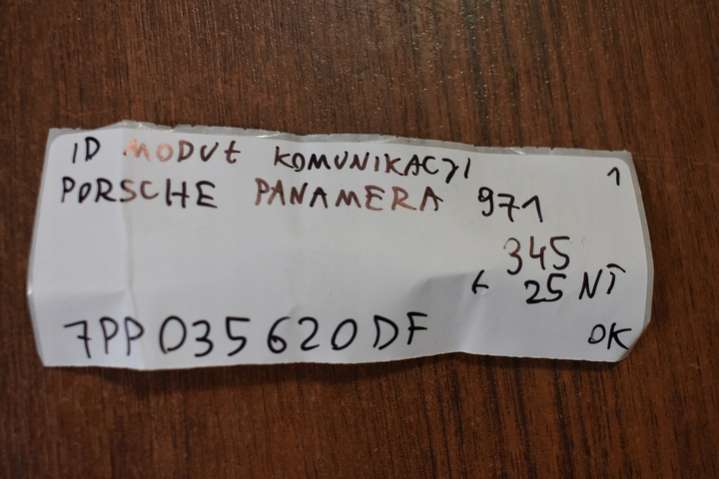 ID MODUŁ KOMUNIKACJI 1
PORSCHE PANAMERA 971
345
25 NT
7PP035620DF OK